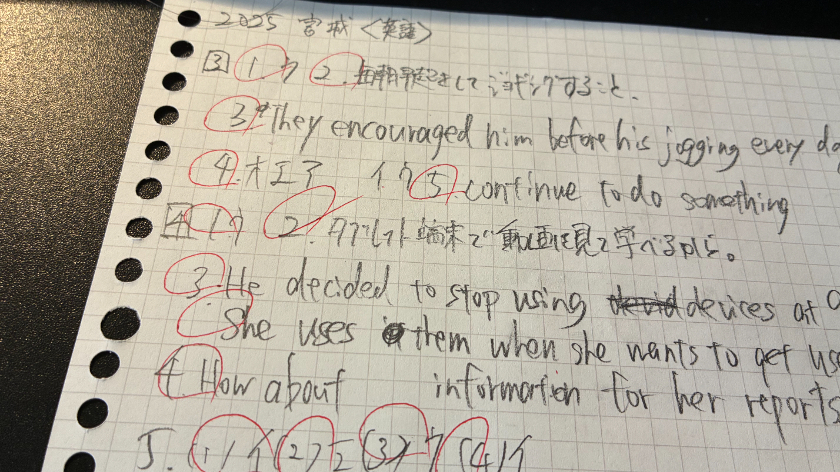 2025 宮城 <英語>
3 1. ウ 2. 毎朝早起きして ジョギングすること。
3. They encouraged him before his jogging every da
4. オエア イウ 5. continue to do something
4 1 ウ 2. タブレット端末で動画を見て学べるから。
3. He decided to stop using devices at
She uses them when she wants to get us
4 How about information for her reports
5. (1) イ (2) エ (3) ウ (4) イ